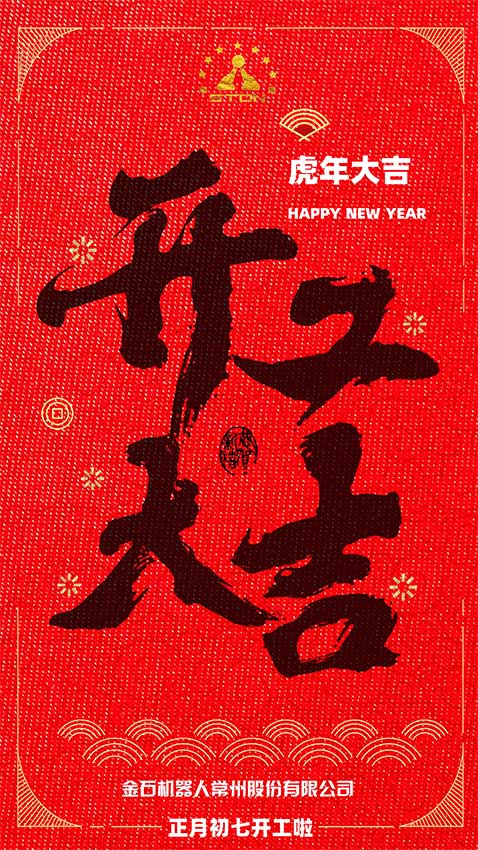 STON
虎年大吉
HAPPY NEW YEAR
开工
大吉
金石机器人常州股份有限公司
正月初七开工啦